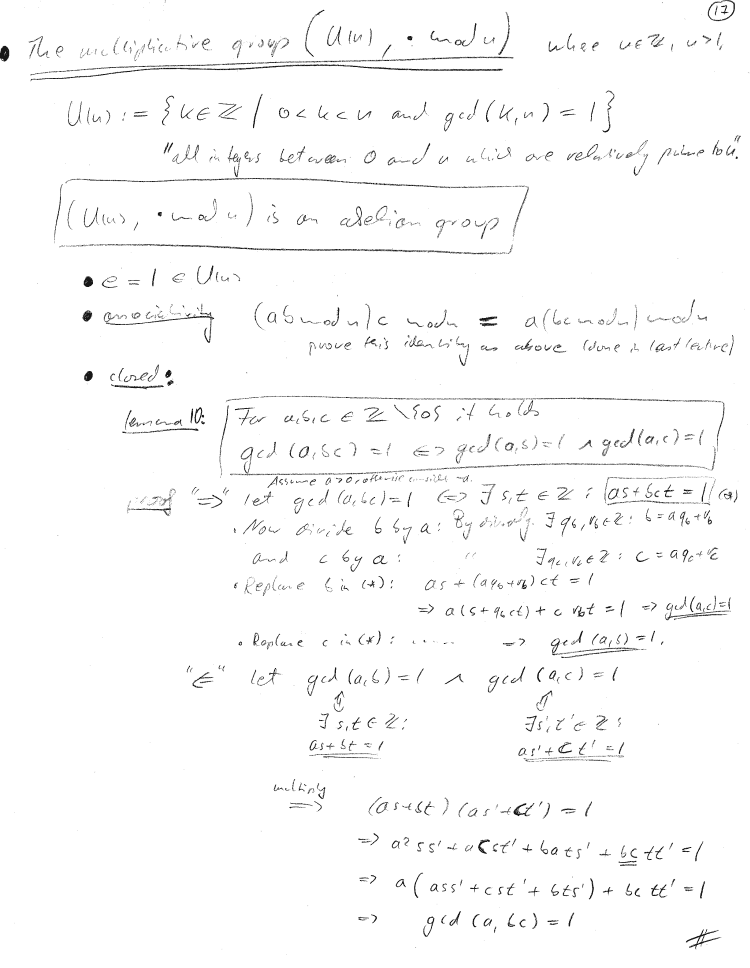 17
• The multiplicative group (U(n), · mod n) where n∈ℤ, n>1,
U(n) := {k∈ℤ / 0<k<n and gcd(k,n) = 1}
"all integers between 0 and n which are relatively prime to n".
(U(n), · mod n) is an abelian group
• e = 1 ∈ U(n)
• associativity (ab mod n)c mod n = a(bc mod n) mod n
prove this identity as above (done in last lecture)
• closed:
Lemma 10: For a,b,c ∈ ℤ \ {0} it holds
gcd(a,bc) = 1 <=> gcd(a,b)=1 ∧ gcd(a,c)=1
Assume a>0, otherwise consider -a.
proof "=>" let gcd(a,bc)=1 <=> ∃ s,t ∈ ℤ : as+bct = 1 (*)
• Now divide b by a: By ∃ q_b, r_b ∈ ℤ : b = a q_b + r_b
and c by a: " ∃ q_c, r_c ∈ ℤ : c = a q_c + r_c
• Replace b in (*): as + (aq_b+r_b) ct = 1
=> a(s+q_b ct) + c r_b t = 1 => gcd(a,c)=1
• Replace c in (*): ..... => gcd(a,b)=1.
"<=" let gcd(a,b)=1 ∧ gcd(a,c)=1
⇕ ⇕
∃ s,t ∈ ℤ: ∃ s',t' ∈ ℤ:
as+bt = 1 as'+ct' = 1
multiply
=> (as+bt)(as'+ct') = 1
=> a²ss' + acst' + bats' + bctt' = 1
=> a(ass' + cst' + bts') + bctt' = 1
=> gcd(a,bc) = 1
#